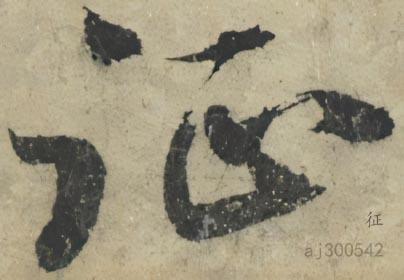 征
征
aj300542